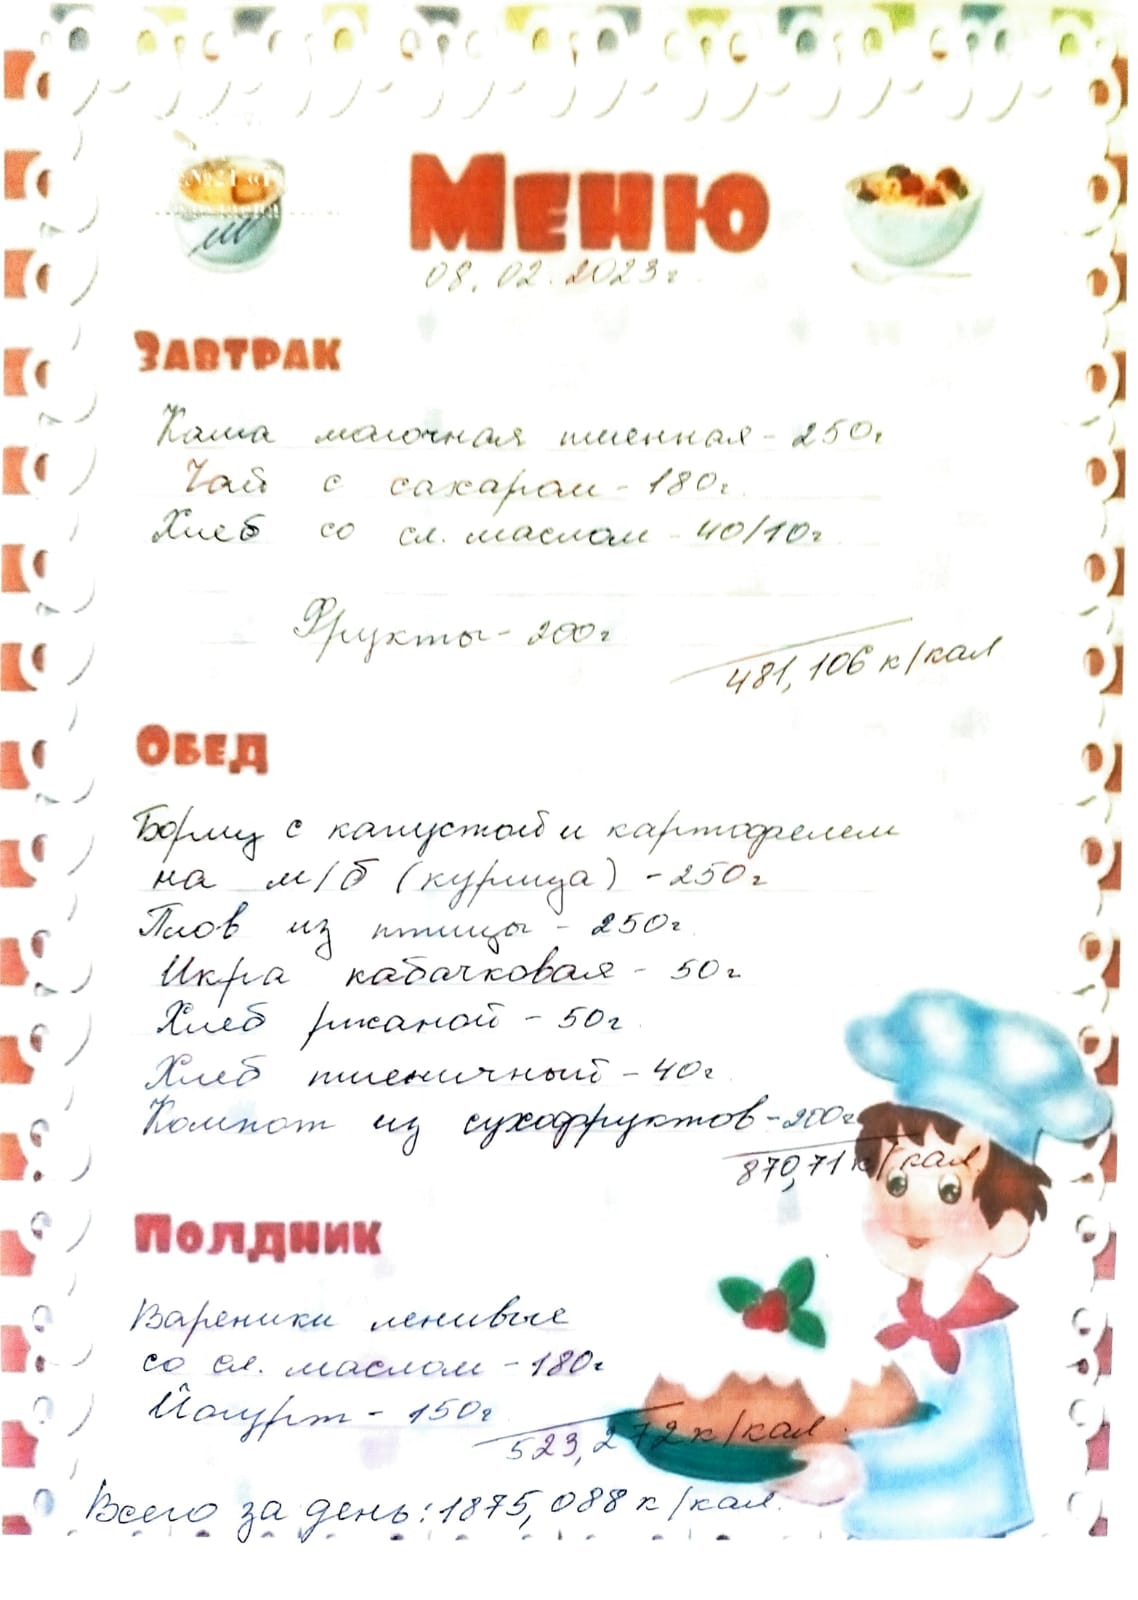 Меню
08.02.2023г.
Завтрак
Каша молочная пшенная - 250г
Чай с сахаром - 180г.
Хлеб со сл. маслом - 40/10г
Фрукты - 200г
481,106 к/кал
Обед
Борщ с капустой и картофелем
на м/б (курица) - 250г
Плов из птицы - 250г.
Икра кабачковая - 50г
Хлеб ржаной - 50г.
Хлеб пшеничный - 40г.
Компот из сухофруктов - 200г
870,71 к/кал.
Полдник
Вареники ленивые
со сл. маслом - 180г
Йогурт - 150г
523,272 к/кал.
Всего за день: 1875,088 к/кал.